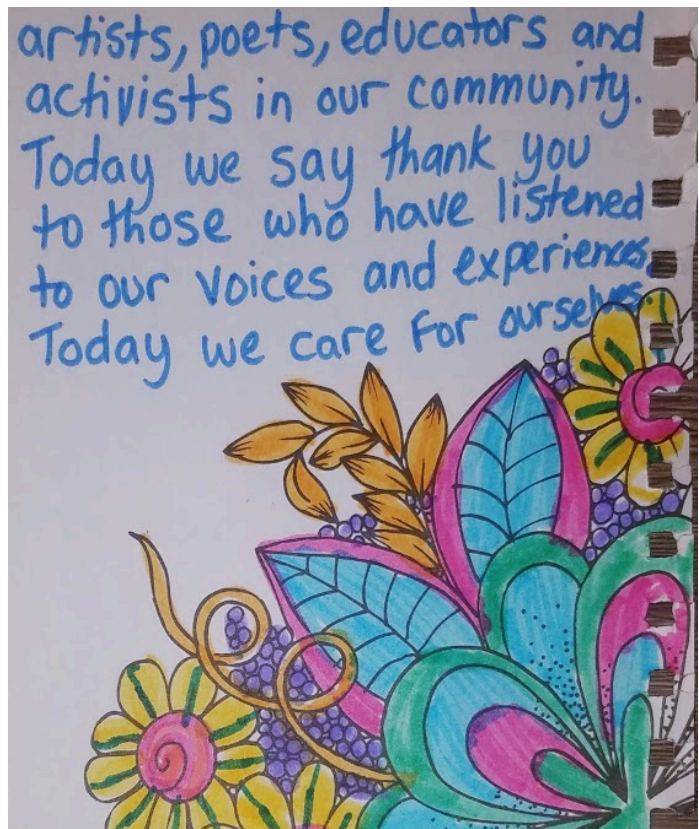 artists, poets, educators and
activists in our community.
Today we say thank you
to those who have listened
to our voices and experiences.
Today we care for ourselves.